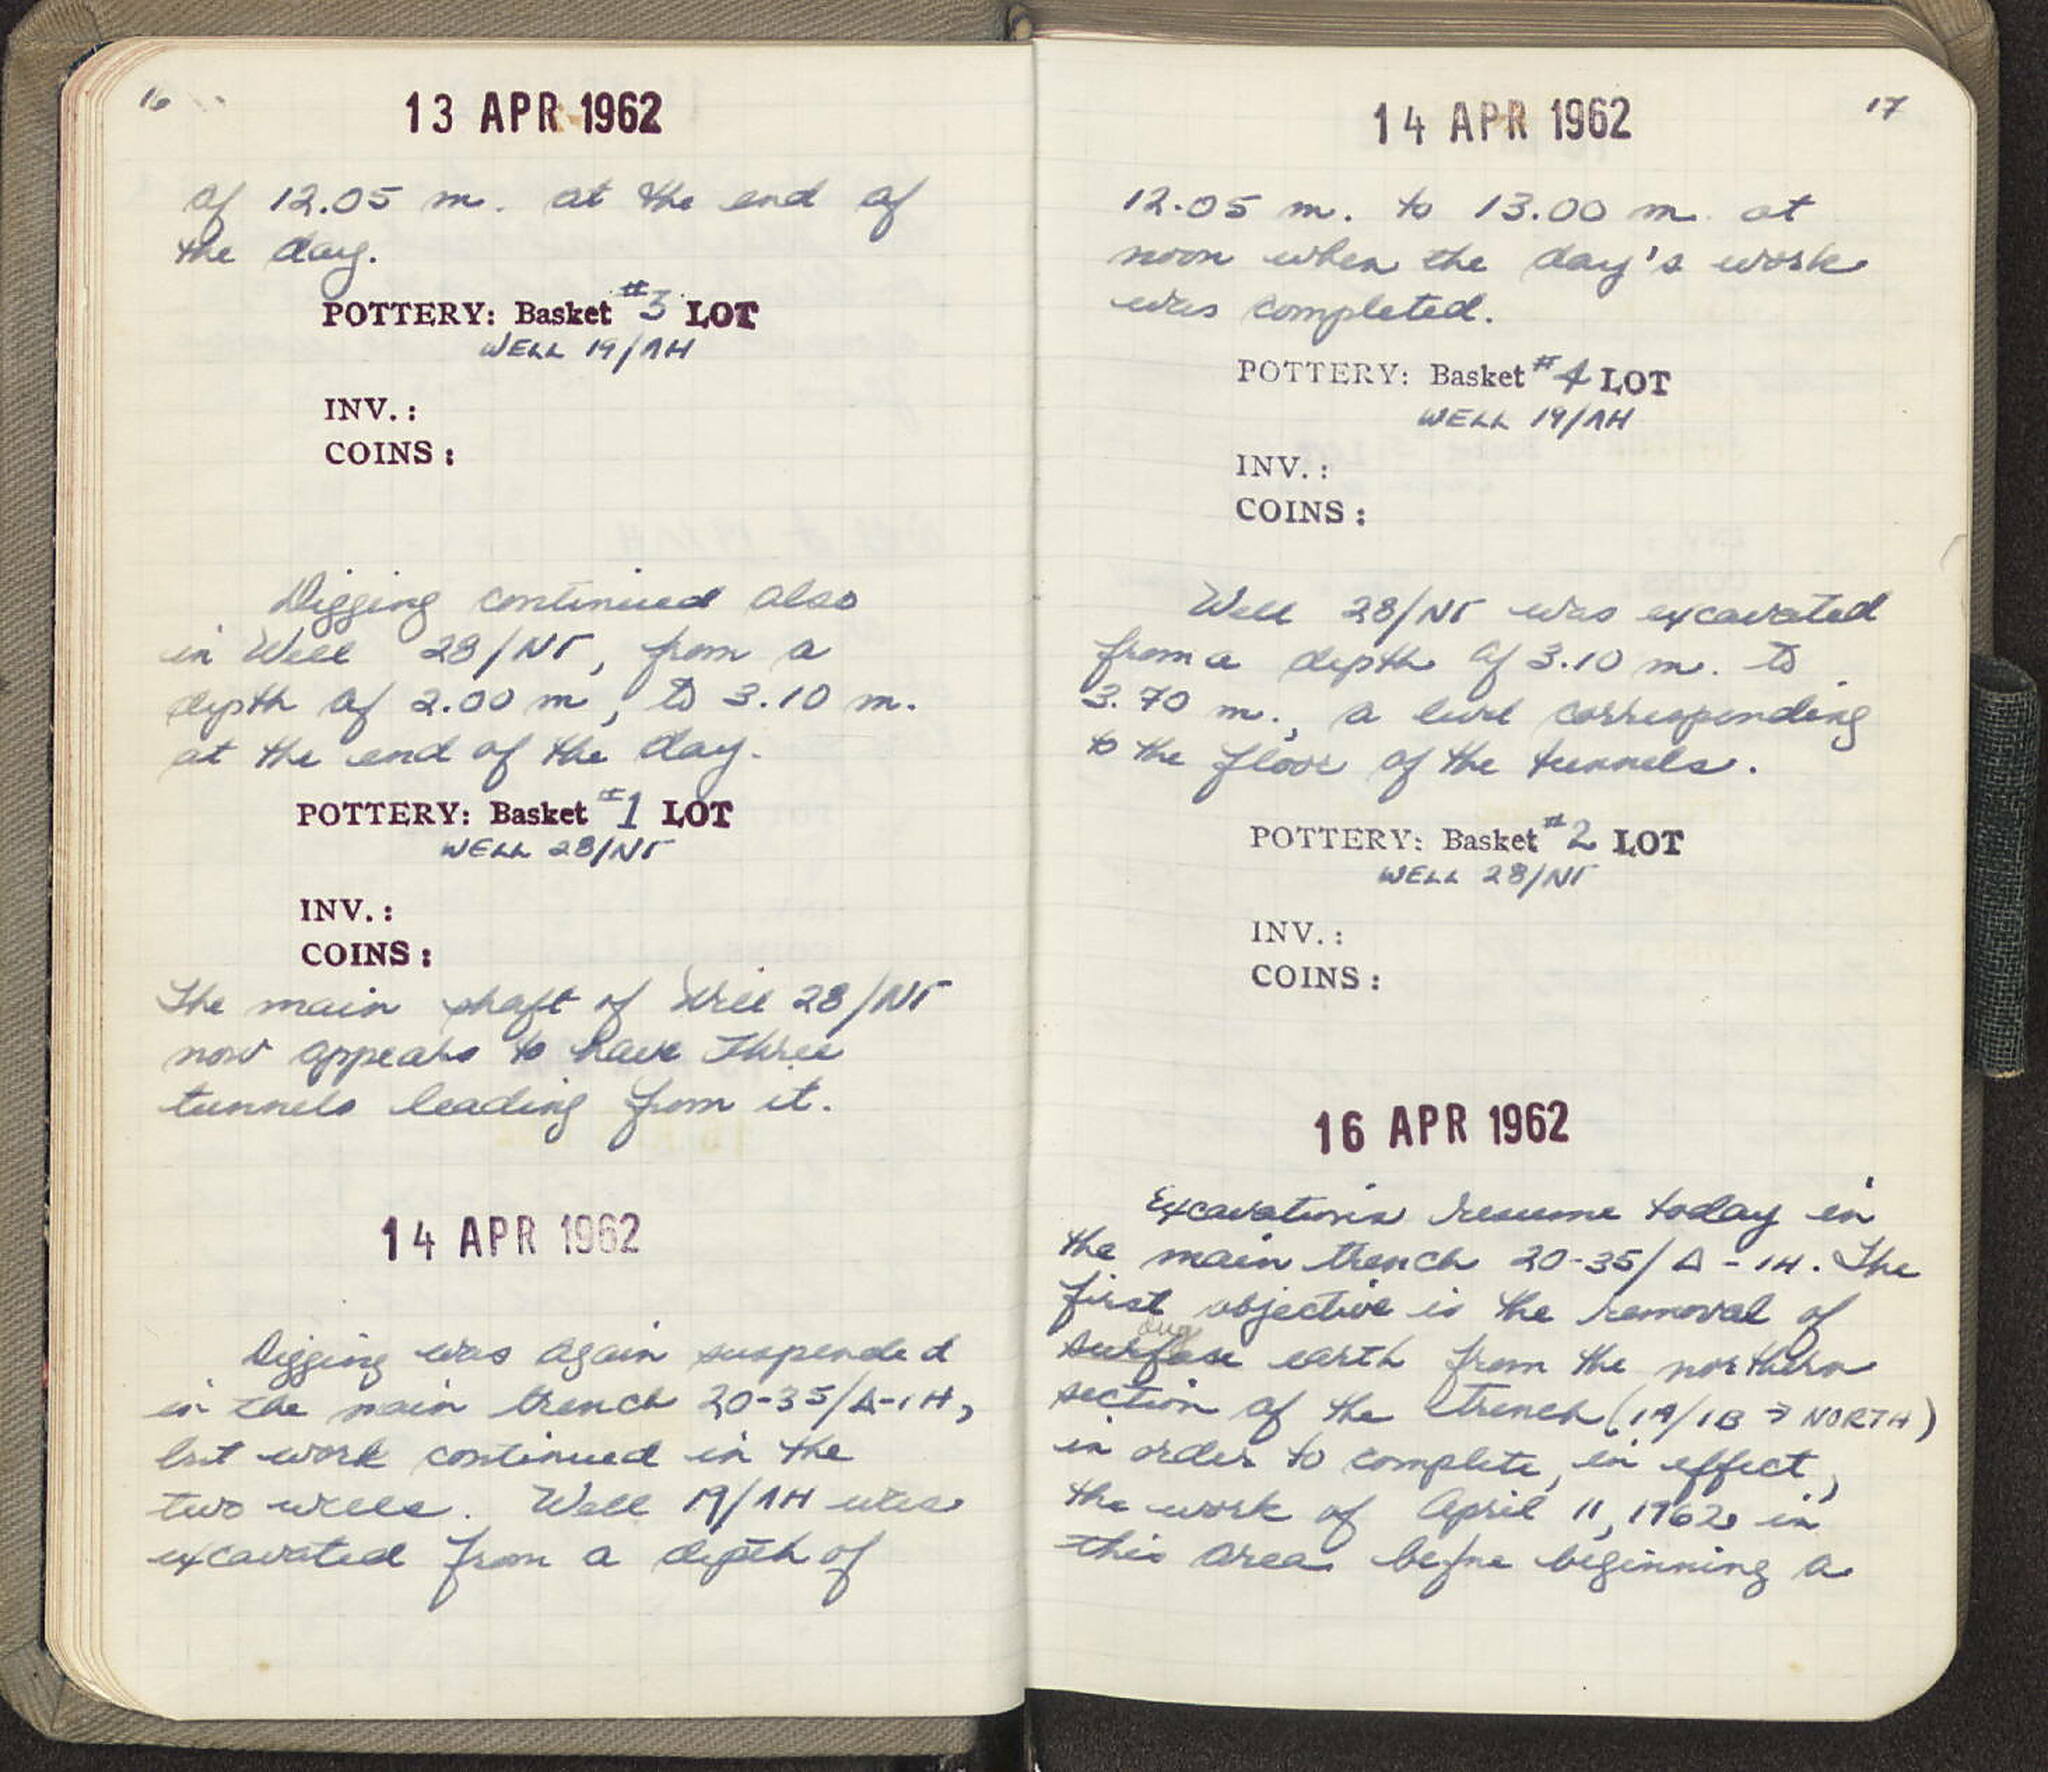 16
13 APR 1962
of 12.05 m. at the end of
the day.
POTTERY: Basket #3 LOT
WELL 19/ΛH
INV.:
COINS:
Digging continued also
in Well 28/NΓ, from a
depth of 2.00 m, to 3.10 m.
at the end of the day.
POTTERY: Basket #1 LOT
WELL 28/NΓ
INV.:
COINS:
The main shaft of Well 28/NΓ
now appears to have three
tunnels leading from it.
14 APR 1962
Digging was again suspended
in the main trench 20-35/Δ-IH,
but work continued in the
two wells. Well 19/ΛH was
excavated from a depth of
17
14 APR 1962
12.05 m. to 13.00 m. at
noon when the day's work
was completed.
POTTERY: Basket #4 LOT
WELL 19/ΛH
INV.:
COINS:
Well 28/NΓ was excavated
from a depth of 3.10 m. to
3.70 m., a level corresponding
to the floor of the tunnels.
POTTERY: Basket #2 LOT
WELL 28/NΓ
INV.:
COINS:
16 APR 1962
Excavations resume today in
the main trench 20-35/Δ-IH. The
first objective is the removal of
dug
surfase earth from the northern
section of the trench (1A/1B → NORTH)
in order to complete, in effect,
the work of April 11, 1962 in
this area before beginning a